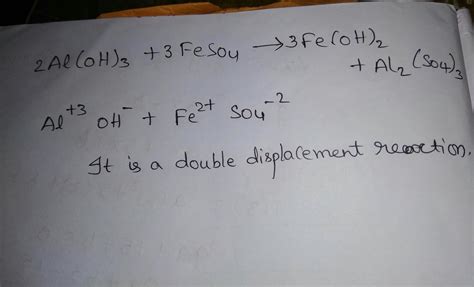 2Al(OH)3 + 3FeSO4 → 3Fe(OH)2
+ Al2(SO4)3
Al+3 OH- + Fe2+ SO4-2
It is a double displacement reaction.